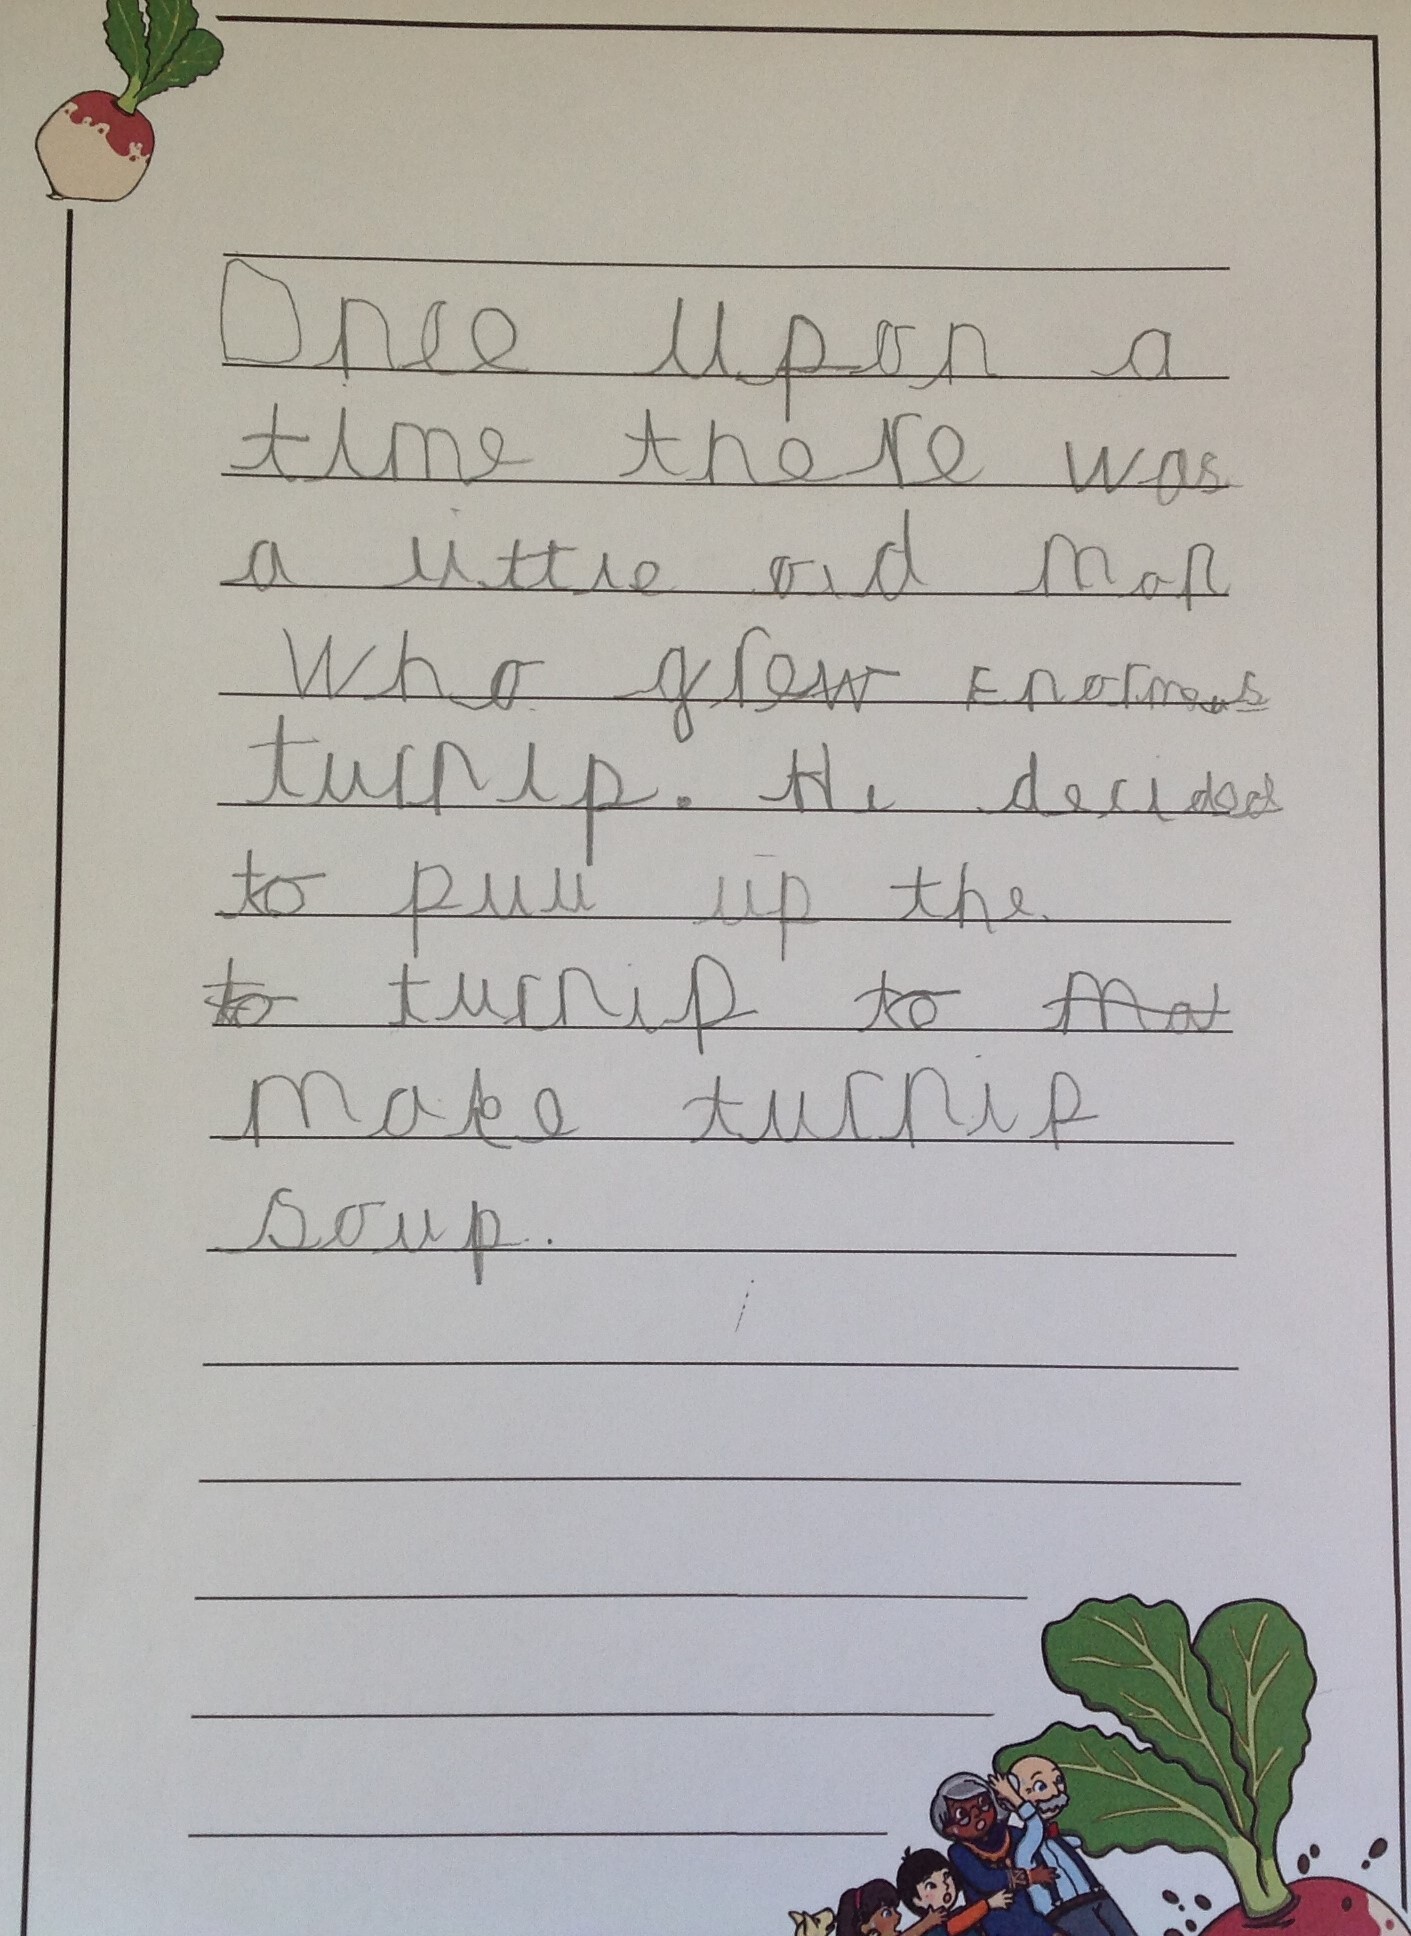 Once upon a
time there was
a little old man
who grew Enormous
turnip. He decided
to pull up the
to turnip to mat
make turnip
soup.